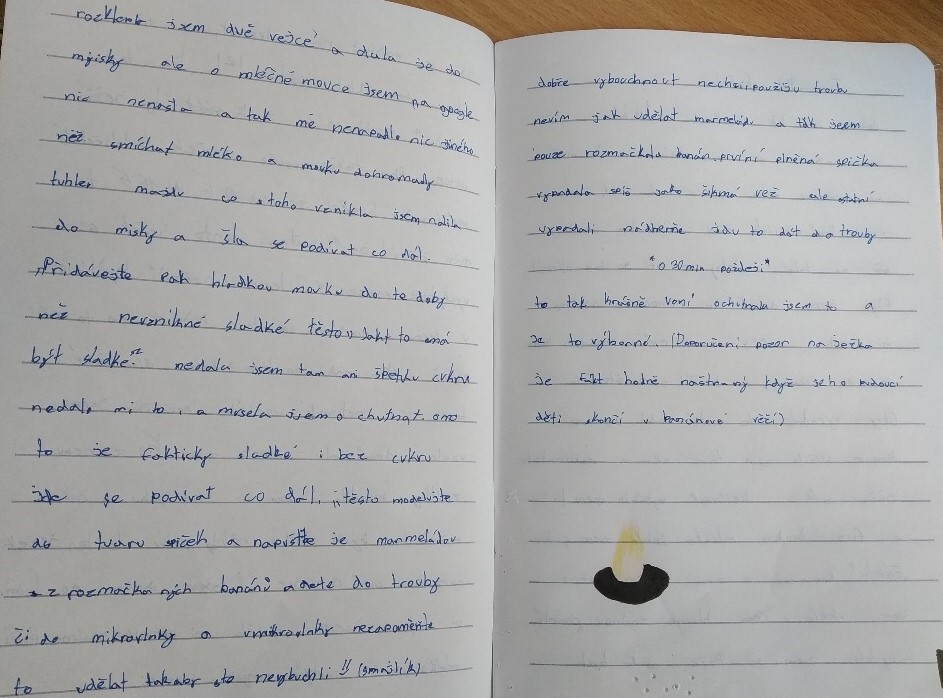 rozklepla jsem dvě vejce a dala je do
mýisky ale o mléčné mouce jsem na google
nic nenašla a tak mě nenapadlo nic jiného
než smíchat mléko a mouku dohromady
tuhler masdu co stoho vznikla jsem nalila
do misky a šla se podívat co dál.
„Přidávejte pak hladkou mouku do te doby
než nevznikné sladké těsto„ Jakt to má
být sladké? nedala jsem tam ani špetku cukru
nedalo mi to, a musela jsem o chutnat ano
to je fakticky sladké i bez cukru
jde se podívat co dál. „těsto modelujte
do tvaru špiček a napusťte je marmeládov
z rozmačka ných banánů a dete do trouby
či do mikrovlnky a vmikrovlnky nezapoměňte
to udělat takaby sto nevybuchli!! (smajlík)
dobře vybouchnout nechci použiju troubu
nevím jak udělat marmeládu a ták jsem
pouze rozmačkala banán. první plněná špička
vypadala spíš jako šikmá věž ale ostatní
vypadali nádherně jdu to dát do trouby
*o 30 min později*
to tak krásně voní ochutnala jsem to a
je to výborné. (Doporučení pozor na ježka
je fakt hodně naštvaný když jeho budoucí
děti skončí v banánové věži)